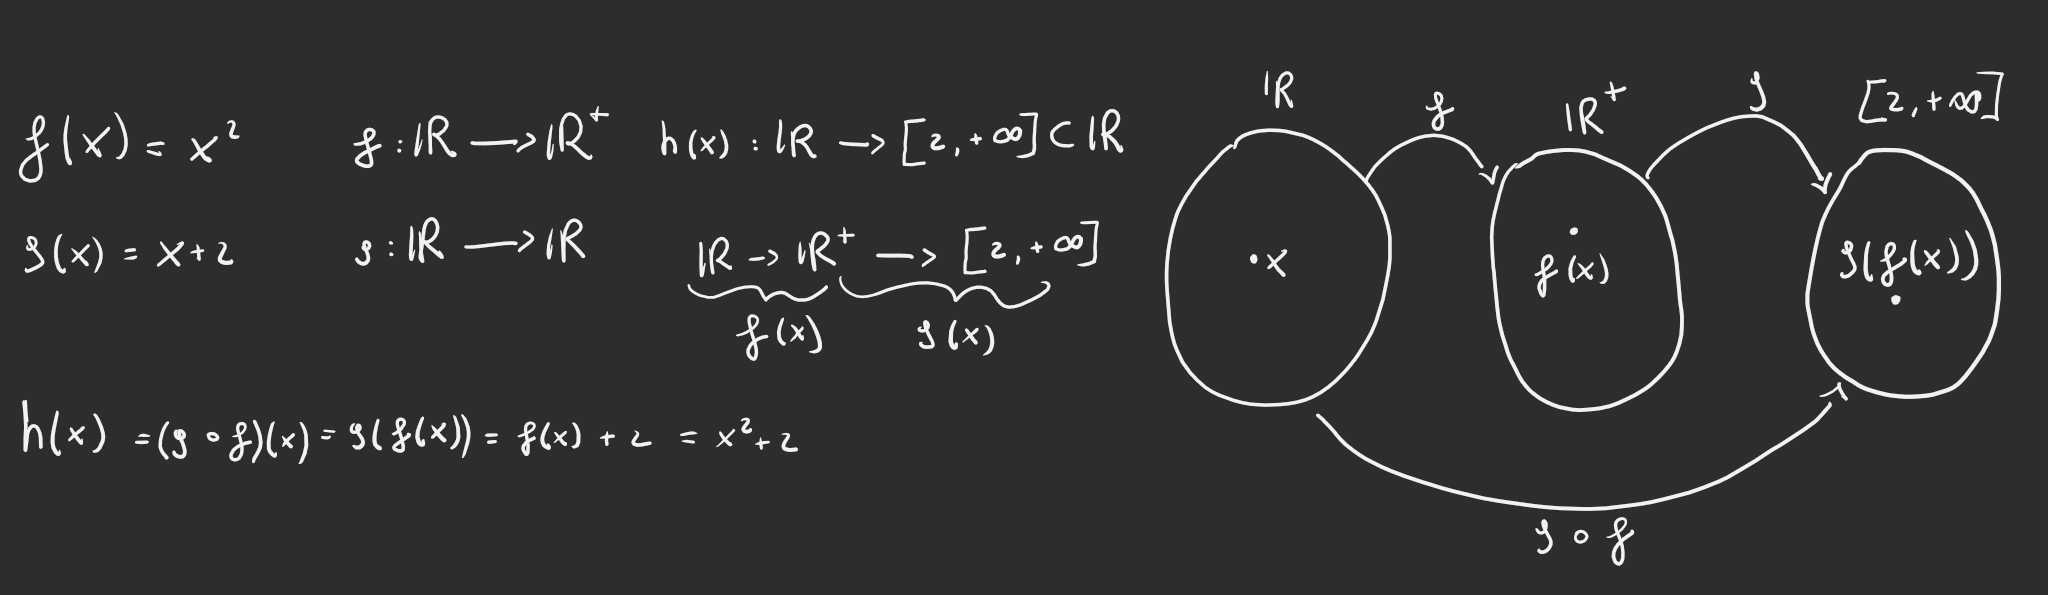 f(x) = x²
f : ℝ → ℝ⁺
h(x) : ℝ → [2, +∞] ⊂ ℝ
g(x) = x+2
g : ℝ → ℝ
ℝ → ℝ⁺ → [2, +∞]
f(x) g(x)
h(x) = (g ∘ f)(x) = g(f(x)) = f(x) + 2 = x² + 2
ℝ f ℝ⁺ g [2, +∞]
· x f(x) g(f(x))
g ∘ f